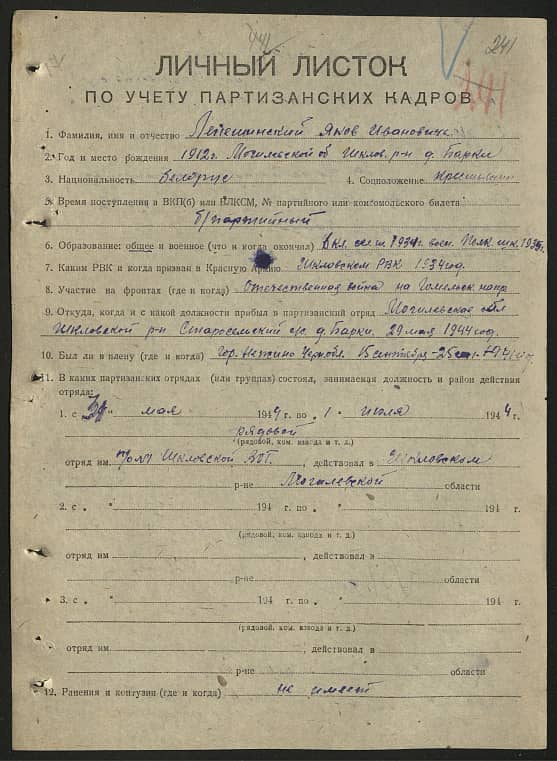 241
241
ЛИЧНЫЙ ЛИСТОК
ПО УЧЕТУ ПАРТИЗАНСКИХ КАДРОВ
1. Фамилия, имя и отчество Яков Иванович
2. Год и место рождения 1912г. Могилевской об Шклов. р-н д. Барки
3. Национальность белорус 4. Соцположение
5. Время поступления в ВКП(б) или ВЛКСМ, № партийного или комсомольского билета
б/партийный
6. Образование: общее и военное (что и когда окончил)
7. Каким РВК и когда призван в Красную Армию Шкловском РВК 1934год.
8. Участие на фронтах (где и когда) Отечественная война на Гомельск напр
9. Откуда, когда и с какой должности прибыл в партизанский отряд Могилевская обл
Шкловской р-н Старосельский с/с д. Барки. 29 мая 1944 год.
10. Был ли в плену (где и когда) гор.
11. В каких партизанских отрядах (или группах) состоял, занимаемая должность и район действия
отряда:
1. с " мая 1944 г. по " 1 " июля 1944 г.
рядовой
(рядовой, ком. взвода и т. д.)
отряд им Шкловской , действовал в Шкловском
р-не Могилевской области
2. с " " 194 г. по " " 194 г.
(рядовой, ком. взвода и т. д.)
отряд им , действовал в
р-не области
3. с " " 194 г. по " " 194 г.
(рядовой, ком. взвода и т. д.)
отряд им , действовал в
р-не области
12. Ранения и контузии (где и когда) не имеет